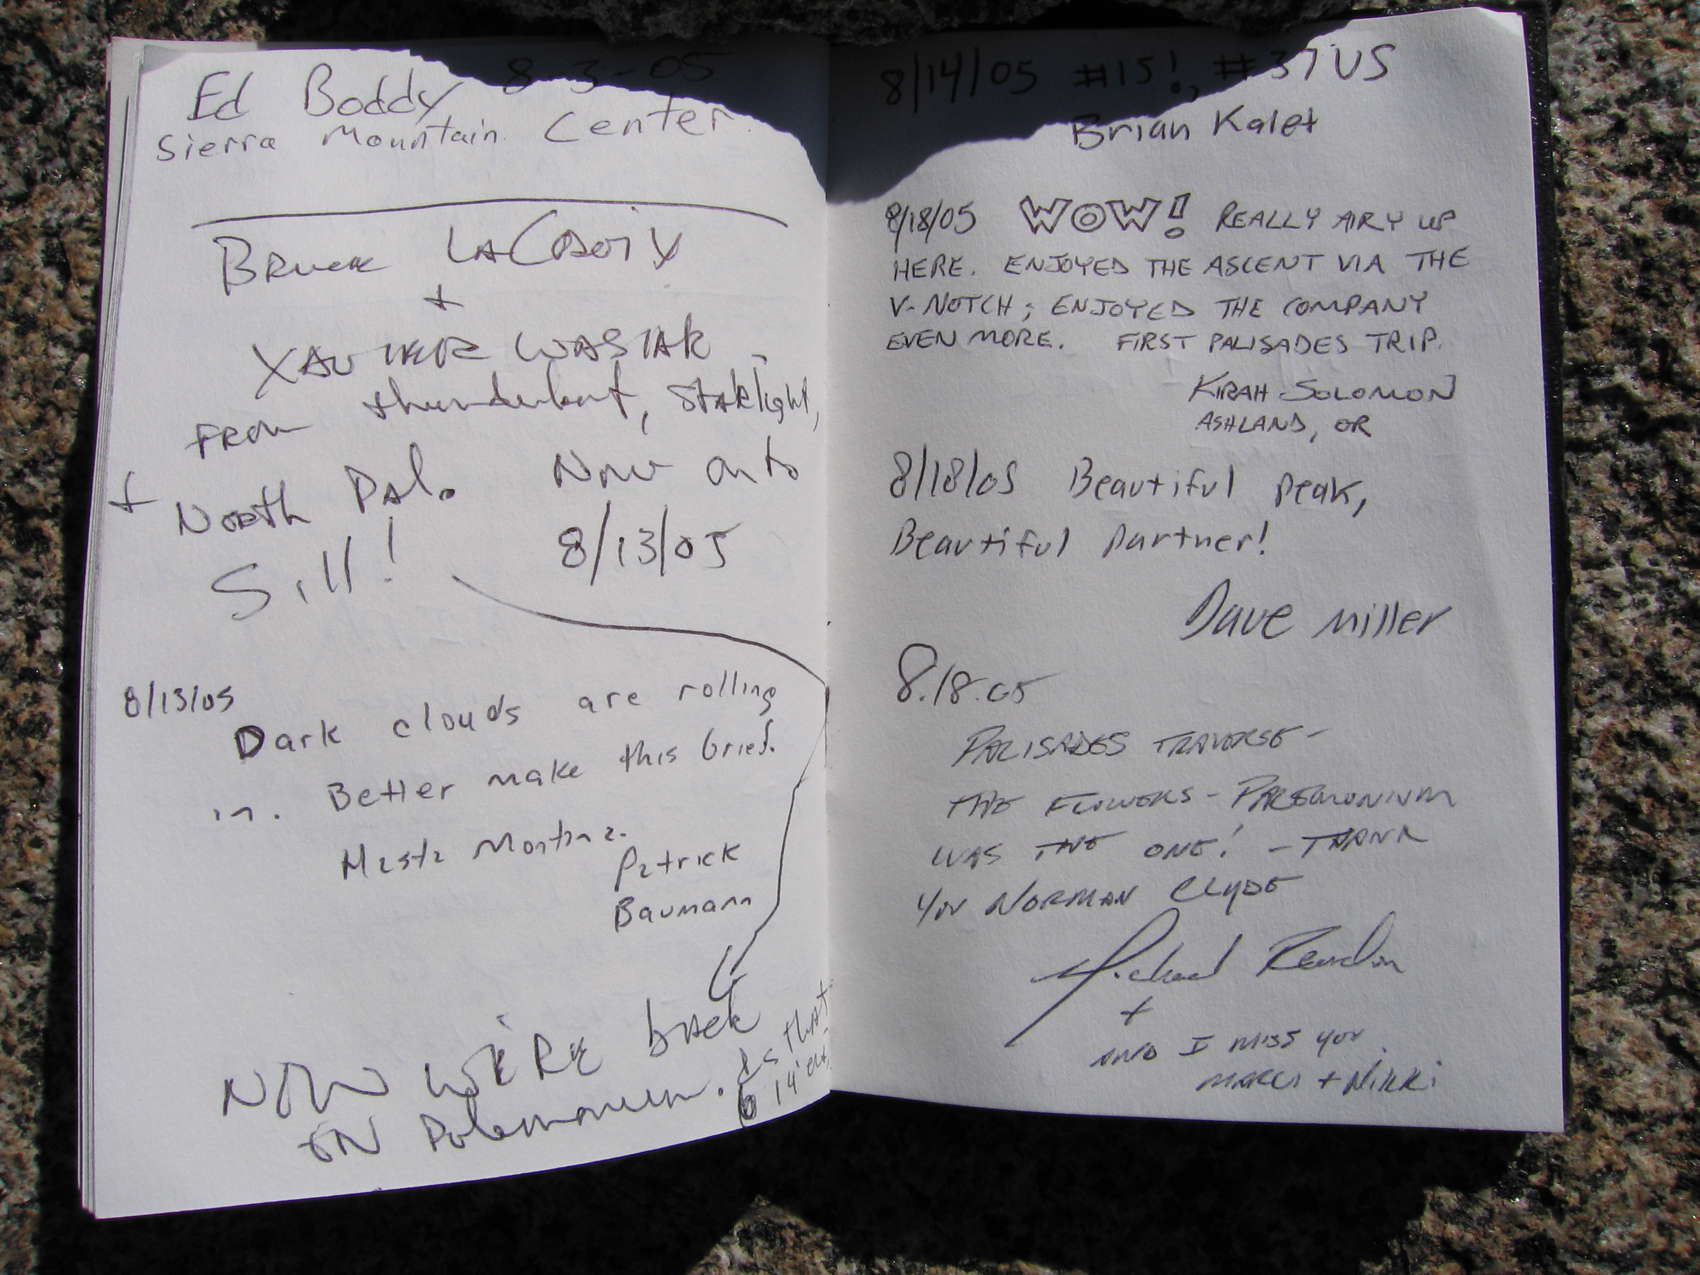 Ed Boddy 8-3-05
Sierra Mountain Center
Bruce LaCroix
+
XAVIER WASIAK
FROM thunderbolt, STARlight,
+ NORTH PAL. Now onto
Sill! 8/13/05
8/13/05
Dark clouds are rolling
in. Better make this brief.
Hasta Mortina.
Patrick
Baumann
NOW WE'RE back
ON Polemonium. Is that
14'er
8/14/05 #15!, #37 US
Brian Kalet
8/18/05 WOW! REALLY AIRY UP
HERE. ENJOYED THE ASCENT VIA THE
V-NOTCH; ENJOYED THE COMPANY
EVEN MORE. FIRST PALISADES TRIP.
KIRAH SOLOMON
ASHLAND, OR
8/18/05 Beautiful peak,
Beautiful partner!
Dave Miller
8.18.05
PALISADES TRAVERSE -
THE FLOWERS - POLEMONIUM
WAS THE ONE! - THANK
YOU NORMAN CLYDE
Michael Reardon
+
AND I MISS YOU
MARCI + NIKKI